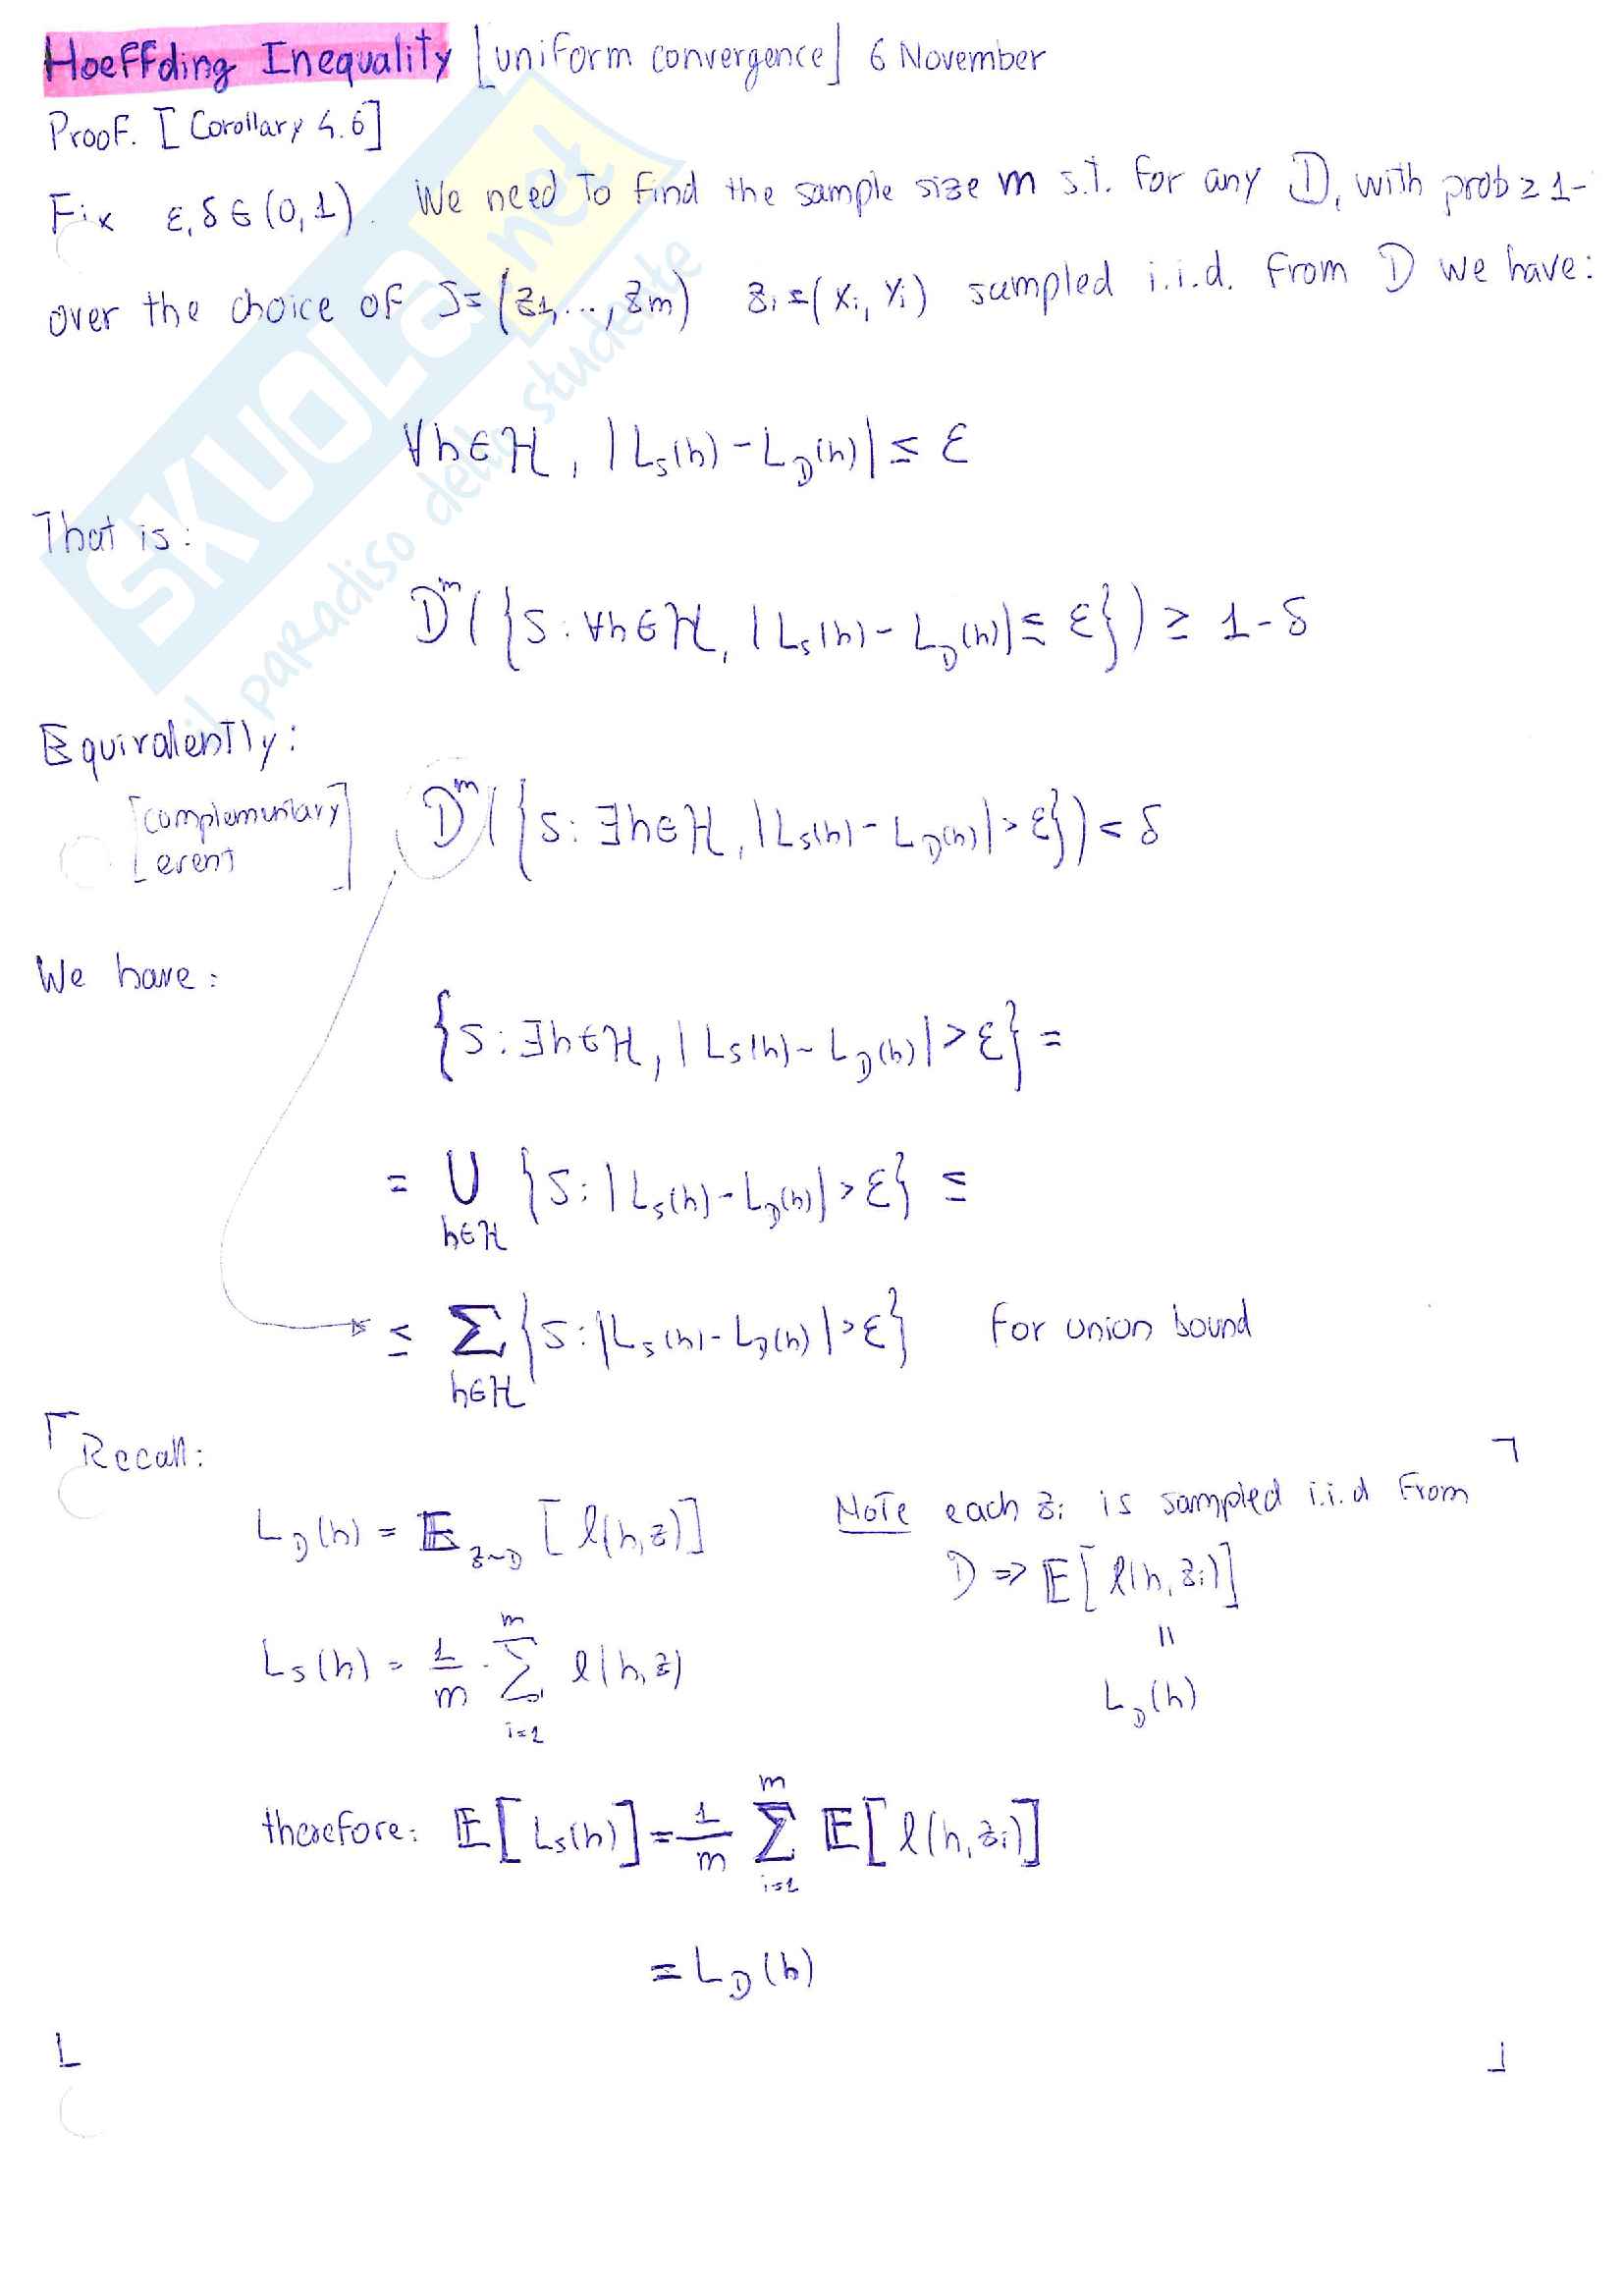 Hoeffding Inequality [uniform convergence] 6 November
Proof. [Corollary 4.6]
Fix ε, δ ∈ (0,1). We need to find the sample size m s.t. for any D, with prob ≥ 1-
over the choice of S = (z1, ..., zm) zi = (xi, yi) sampled i.i.d. from D we have:
∀h∈H, |L_S(h) - L_D(h)| ≤ ε
That is:
D^m({S: ∀h∈H, |L_S(h) - L_D(h)| ≤ ε}) ≥ 1-δ
Equivalently:
[complementary event]
D^m({S: ∃h∈H, |L_S(h) - L_D(h)| > ε}) < δ
We have:
{S: ∃h∈H, |L_S(h) - L_D(h)| > ε} =
= ⋃_{h∈H} {S: |L_S(h) - L_D(h)| > ε} ≤
≤ Σ_{h∈H} {S: |L_S(h) - L_D(h)| > ε} for union bound
Recall:
L_D(h) = E_{z~D} [l(h,z)]
Note each zi is sampled i.i.d from
D => E[l(h,zi)]
=
L_D(h)
L_S(h) = 1/m · Σ_{i=1}^m l(h,z)
therefore: E[L_S(h)] = 1/m Σ_{i=1}^m E[l(h,zi)]
= L_D(h)
SKUOLA.net
il paradiso dello studente